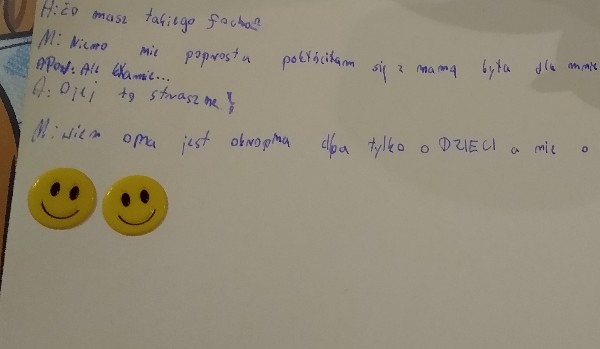 H: co masz takiego focha?
M: Niemo nie poprostu pokłóciłam się z mamą była dla mnie
Apol: Ale kłamie...
A: Ojej to straszne!
M: wiem ona jest okropna dba tylko o DZIECI a nie o